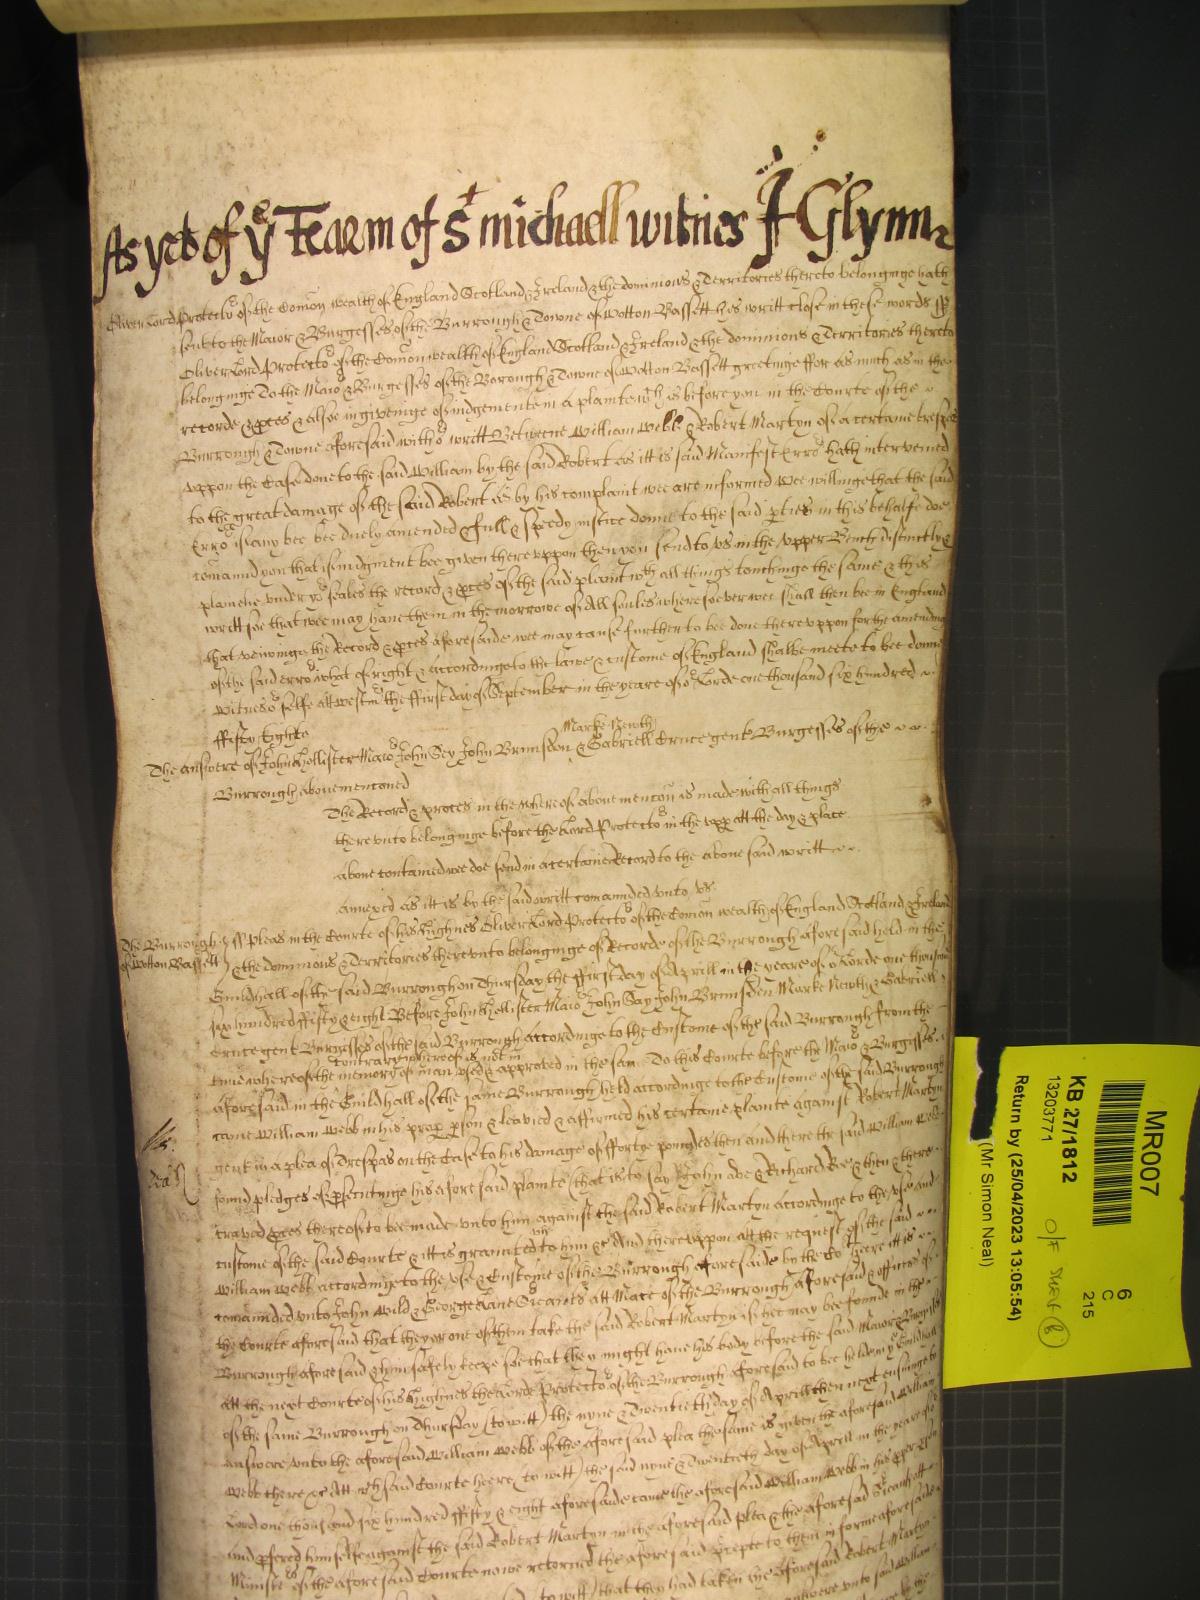 As yet of ye Tearm of St michaell witnes J Glynn
Oliver Lord Protector of the Comon wealth of England Scotland & Ireland & the dominions & Territories thereto belonginge hath
sent to the Maior & Burgesses of the Burrough & Towne of Wotton Bassett his writt close in these words ss
Oliver Lord Protector of the Comonwealth of England Scotland & Ireland & the dominions & Territories thereto
belonginge To the Maior & Burgesses of the Borough & Towne of Wotton Bassett greetinge ffor as much as in the
recorde & pces & alsoe in giveinge of iudgemente in a plainte wch is before you in the Courte of the
Burrough & Towne aforesaid with or writt Betweene William Webb & Robert Martyn of a certaine trespas
uppon the Case done to the said William by the said Robert as itt is said Manifest Error hath intervened
to the great damage of the said Robert as by his complaint wee are informed Wee willinge that the said
Error if any bee bee duely amended & full & speedy iustice donne to the said pties in this behalfe doe
comannd you that if iudgment bee given thereuppon then you send to us in the Upper Bench distinctly &
plainelie under yor seales the record & pces of the said plaint wth all things touchinge the same & this
writt soe that wee may have them in the morrowe of All soules wheresoever wee shall then bee in England
that veiwinge the Record & pces aforesaide wee may cause further to bee done thereuppon for the amendinge
of the said error what of right & accordinge to the lawe & custome of England shalbe meete to bee donne
Witnes or selfe att Westmr the ffirst day of September in the yeare of or Lorde one thousand six hundred
ffifty Eighte
Marke Newth
The answere of John Hollister Maior John Sey John Brunsdon & Gabriell Cruce gent Burgesses of the
Burrough abovementoned
The Record & proces in the where of above mencon is made with all things
thereunto belonginge before the Lord Protector in the upp att the day & place
above contained wee doe send in a certaine Record to the above said writt
annexed as itt is by the said writt comannded unto us
The Burrough of Wotton Bassett
ss Pleas in the Courte of his Highnes Oliver Lord Protector of the Comon wealth of England Scotland & Ireland
& the dominions & Territories thereunto belonginge of Recorde of the Burrough aforesaid held in the
Guildhall of the said Burrough on Thursday the ffirst day of Aprill in the yeare of or Lorde one thousand
six hundred ffifty & eight Before John Hollister Maior John Say John Brunsden Marke Newth & Gabriell
Cruce gent Burgesses of the said Burrough accordinge to the Custome of the said Burrough from the
contrary whereof is not in
time whereof the memory of man used & approved in the sam To this Courte before the Maior & Burgesses
aforesaid in the Guildhall of the same Burrough held accordinge to the Custome of the said Burrough
came William Webb in his prop pson & leavied & affirmed his certaine plainte against Robert Martyn
gent in a plea of Trespas on the Case to his damage of ffortye poundes then and there the said William Webb
found pledges of psecutinge his aforesaid plainte (that is to say) John doe & Richard Roe & then & there
craved pces thereof to bee made unto him against the said Robert Martyn accordinge to the use and
custome of the said Courte & itt is graunted to him &c And thereuppon att the request of the said
William Webb accordinge to the use & Custome of the Burrough aforesaide by the Court heere itt is
comannded unto John Wild & George Lane Sergeants att Mace of the Burrough aforesaid & officers of
the Courte aforesaid that they or one of them take the said Robert Martyn if hee may bee founde in the
Burrough aforesaid & him safely keepe soe that they might have his body before the said Maior & Burgesses
att the next Courte of his Highnes the Lorde Protector of the Burrough aforesaid to bee holden in ye Guildhall
of the same Burrough on Thursday (to witt) the nyne & Twentieth day of Aprill then next ensuinge to
answere unto the aforesaid William Webb of the aforesaid plea the same is given the aforesaid William
Webb there &c Att wch said Courte heere (to witt) the said nyne & Twentieth day of Aprill in the yeare of or
Lord one thousand six hundred ffifty & eight aforesaide came the aforesaid William Webb in his pper pson
and offered himselfe against the said Robert Martyn in the aforesaid plea & the aforesad Sergeants att
Ministers of the aforesaid Courte nowe retorned the aforesaid precpte to them in forme aforesaide
(to witt) that they had taken the aforesaid Robert Martyn
answere unto said William
MR007
6
C
215
KB 27/1812
13203771
O/F
Return by (25/04/2023 13:05:54)
(Mr Simon Neal)